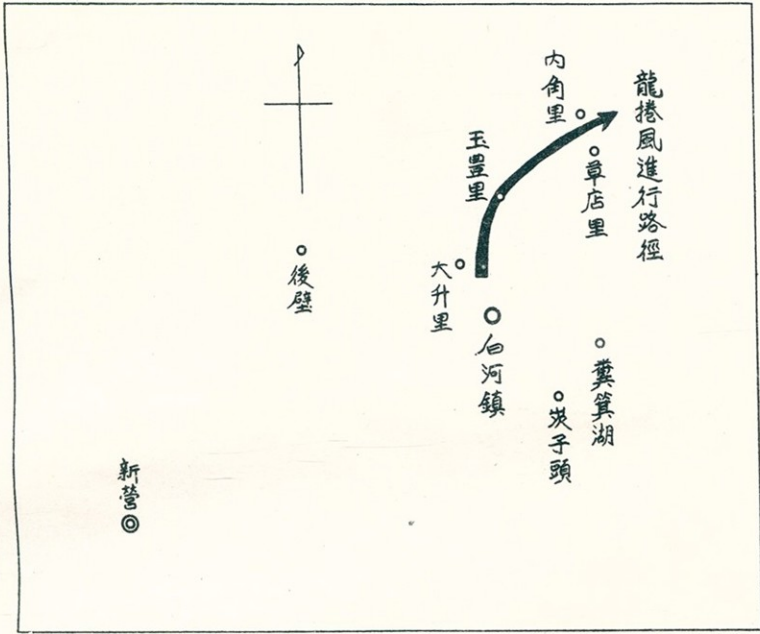 龍捲風進行路徑
內角里
草店里
玉豐里
大升里
白河鎮
糞箕湖
崁子頭
後壁
新營